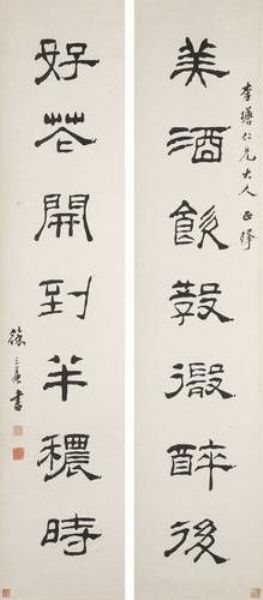 仁兄大人正
美酒飲教微醉後
好花開到半穠時
徐三庚書